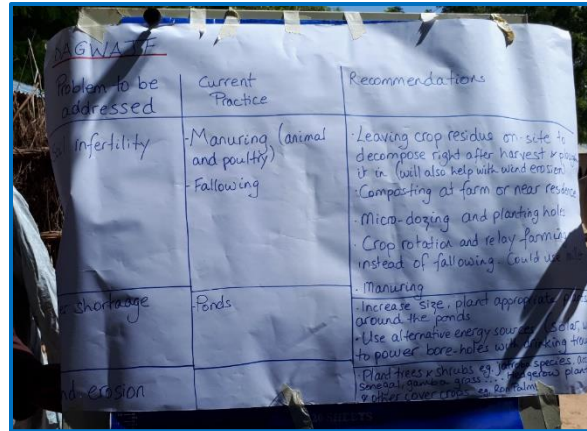 DAGWATE
Problem to be
addressed
Current
Practice
Recommendations
infertility
- Manuring (animal
and poultry)
- Fallowing
· Leaving crop residue on-site to
decompose right after harvest &
it in (will also help with wind erosion)
· Composting at farm or near
· Micro-dozing and planting holes
· Crop rotation and relay farming
instead of fallowing. Could use
· Manuring
shortage
- Ponds
· Increase size, plant appropriate
around the ponds
· Use alternative energy sources
to power bore-holes
erosion
· Plant trees & shrubs eg.
senegal, gamba grass
& other cover crops